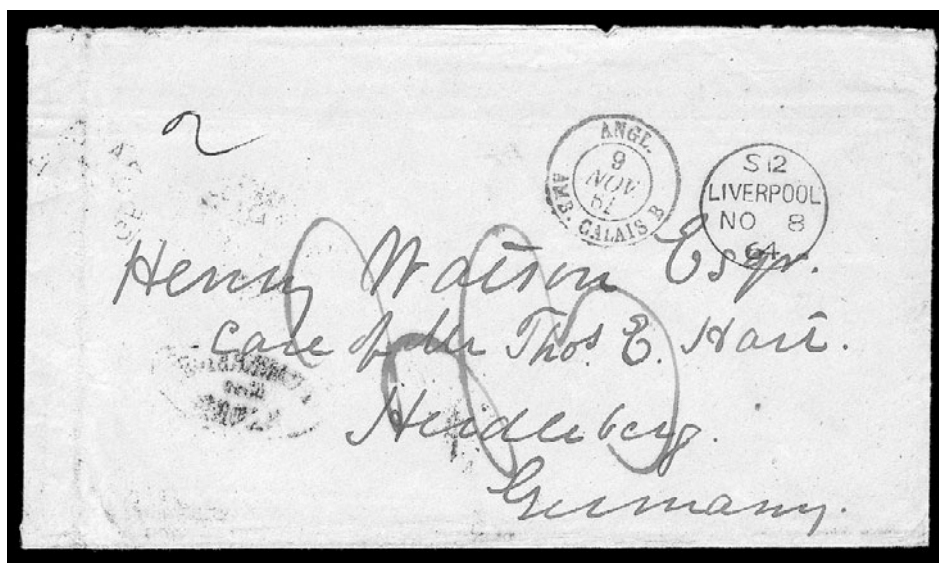 2
ANGL.
9
NOV
64
AMB. CALAIS B
S 12
LIVERPOOL
NO 8
64
Henry Watson Esqr.
Care of Mr Thos. E. Hart.
Heidleberg.
Germany.